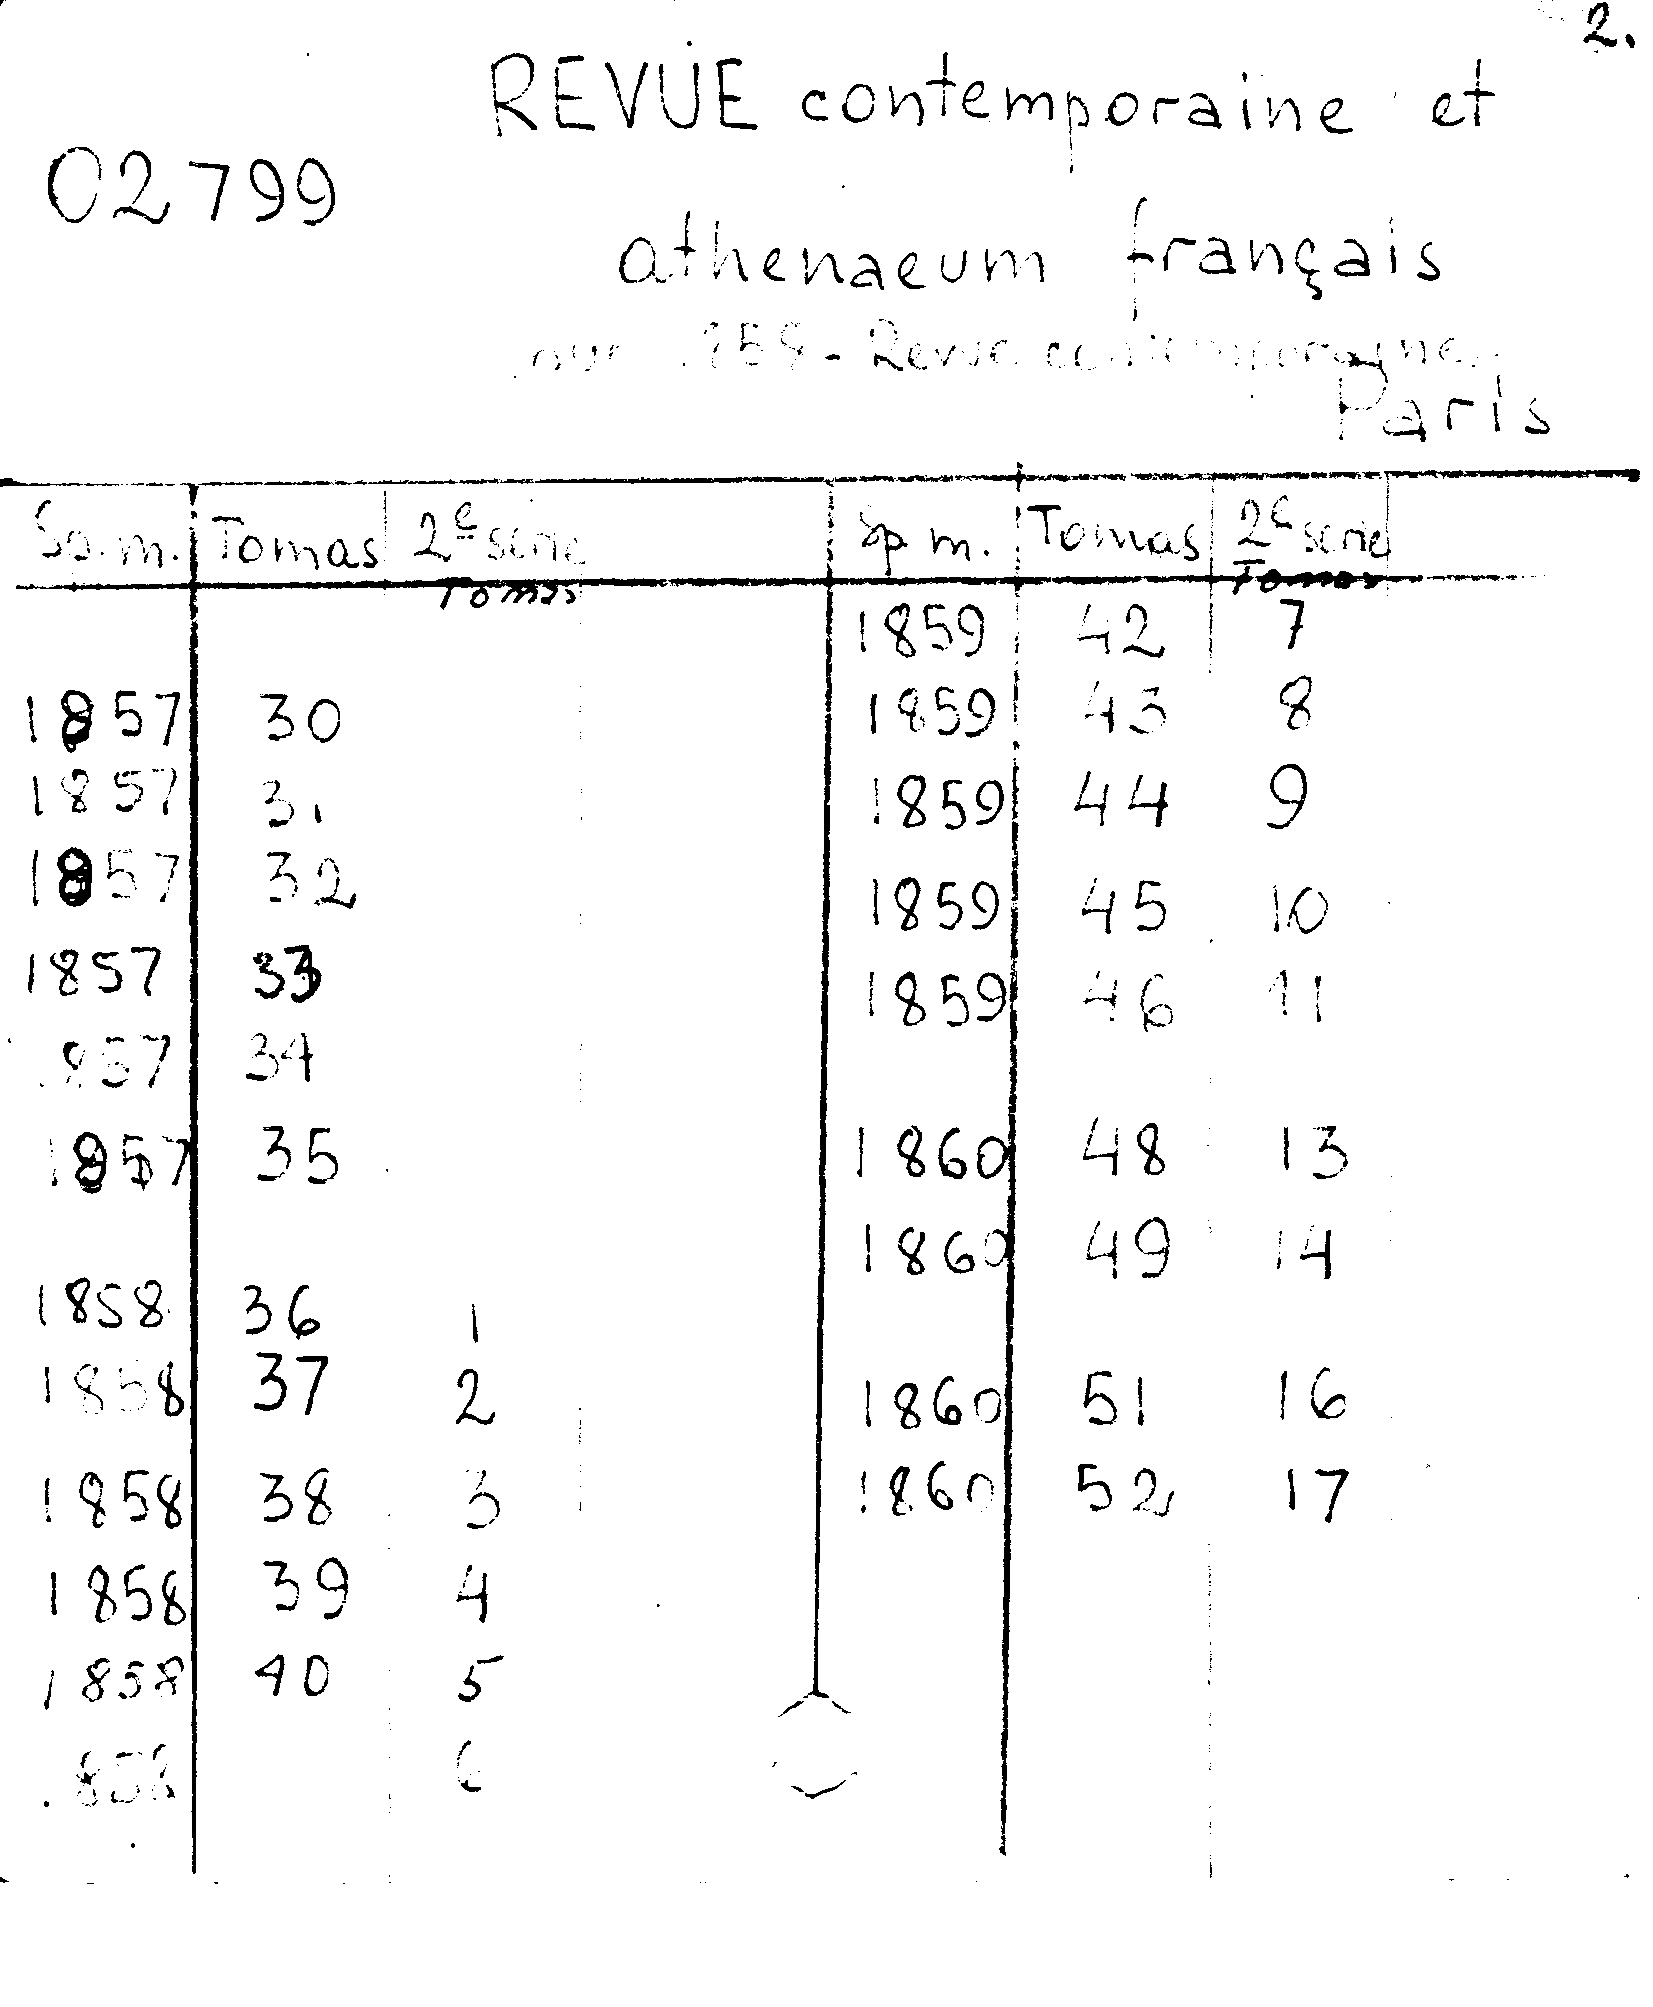 2.
REVUE contemporaine et
02799
athenaeum français
1858 - Revue contemporaine
Paris
Sp. m. Tomas 2e serie Tomas Sp m. Tomas 2e serie Tomas
1859 42 7
1857 30 1859 43 8
1857 31 1859 44 9
1857 32 1859 45 10
1857 33 1859 46 11
1857 34
1857 35 1860 48 13
1860 49 14
1858 36 1
1858 37 2 1860 51 16
1858 38 3 1860 52 17
1858 39 4
1858 40 5
1858 6